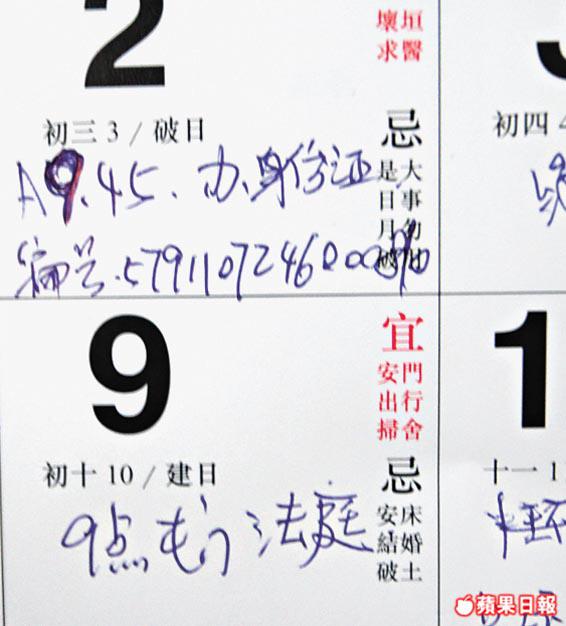 2
壞垣
求醫
初三3/破日
忌
是大
日事
月勿
初四4
A9.45.办身份证
编号.57911072460
9
宜
安門
出行
掃舍
初十10/建日
忌
安床
結婚
破土
9点 法庭
1
十一1
蘋果日報